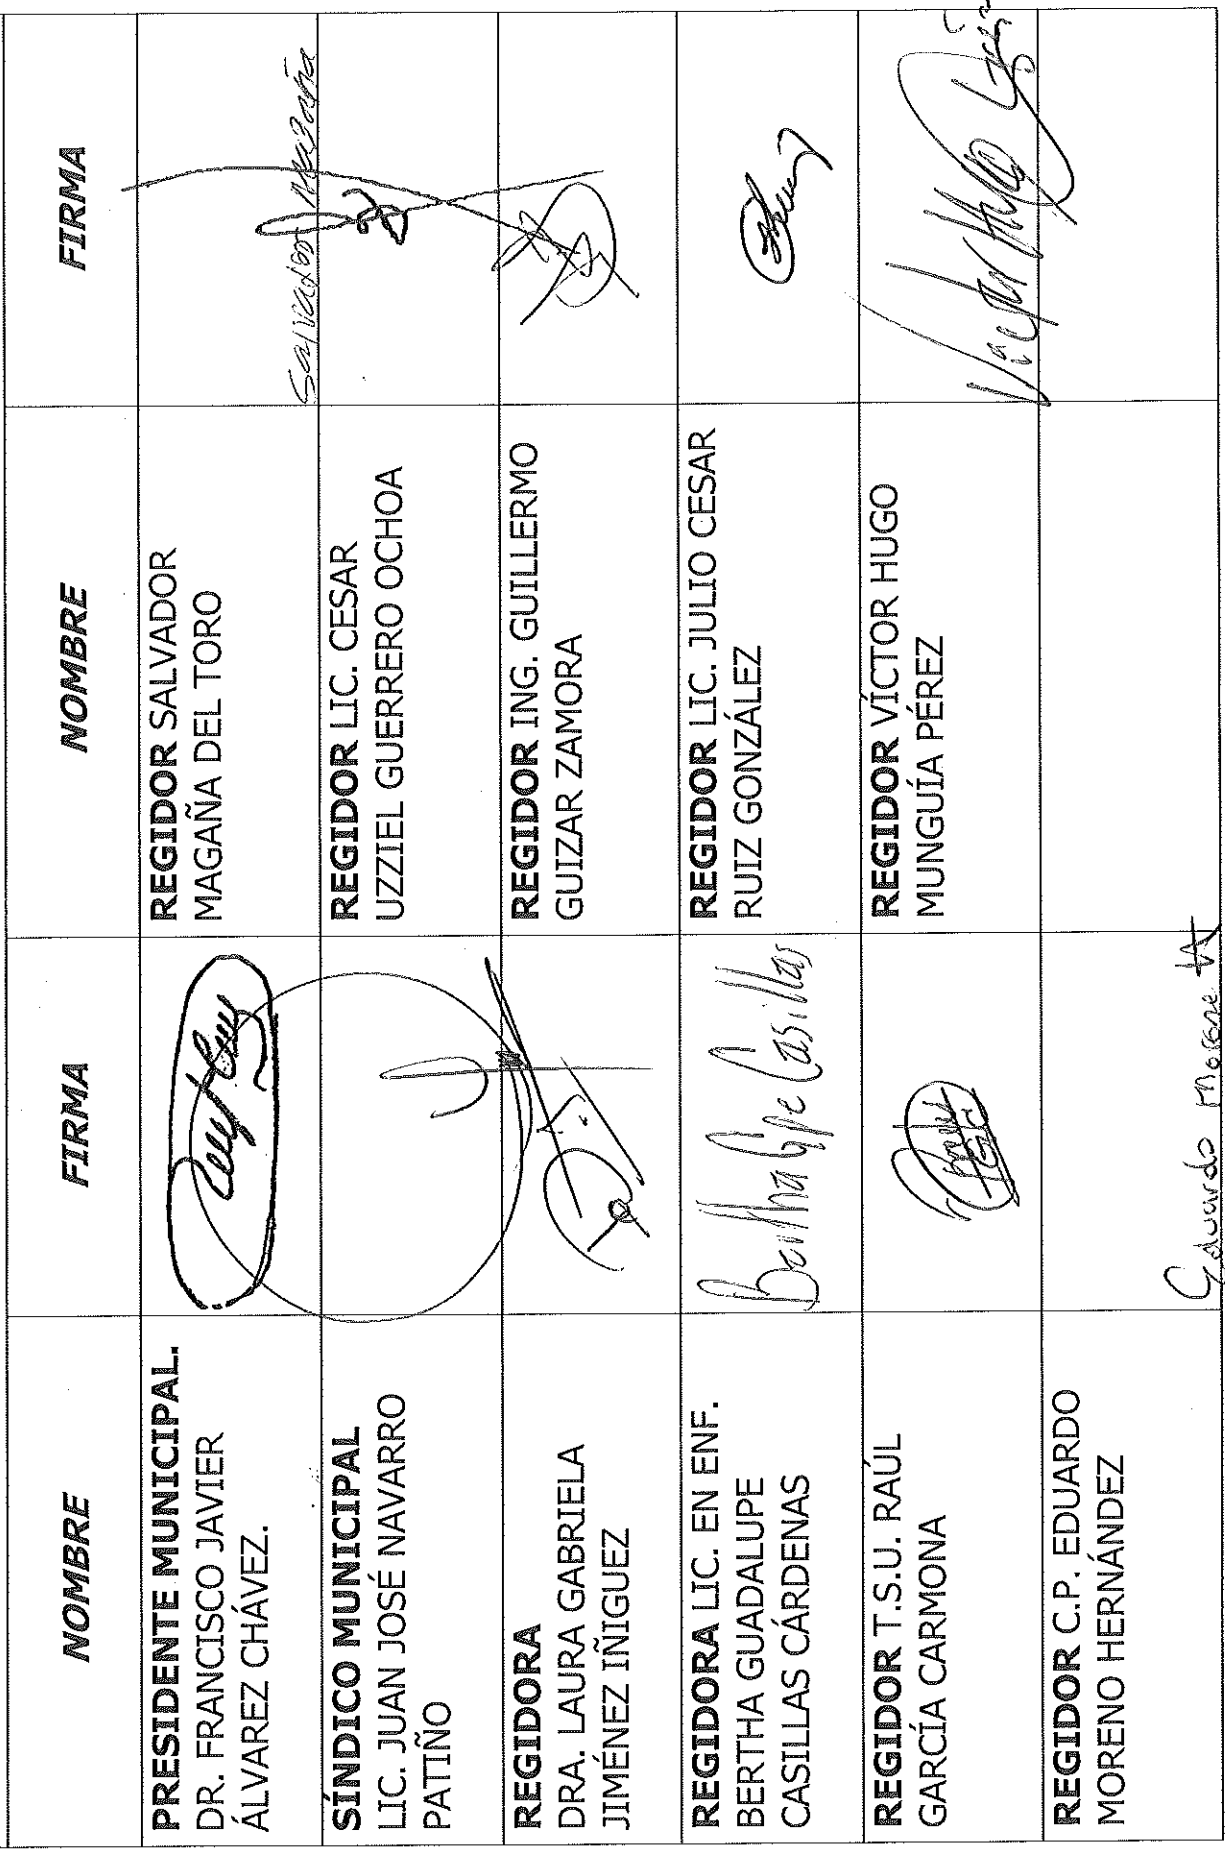 NOMBRE FIRMA NOMBRE FIRMA
PRESIDENTE MUNICIPAL.
DR. FRANCISCO JAVIER
ÁLVAREZ CHÁVEZ.
REGIDOR SALVADOR
MAGAÑA DEL TORO
Salvador Magaña
SÍNDICO MUNICIPAL
LIC. JUAN JOSÉ NAVARRO
PATIÑO
REGIDOR LIC. CESAR
UZZIEL GUERRERO OCHOA
REGIDORA
DRA. LAURA GABRIELA
JIMÉNEZ IÑIGUEZ
REGIDOR ING. GUILLERMO
GUIZAR ZAMORA
REGIDORA LIC. EN ENF.
BERTHA GUADALUPE
CASILLAS CÁRDENAS
Bertha Gpe Casillas
REGIDOR LIC. JULIO CESAR
RUIZ GONZÁLEZ
REGIDOR T.S.U. RAÚL
GARCÍA CARMONA
REGIDOR VÍCTOR HUGO
MUNGUÍA PÉREZ
Victor Hugo
REGIDOR C.P. EDUARDO
MORENO HERNÁNDEZ
Eduardo Moreno H